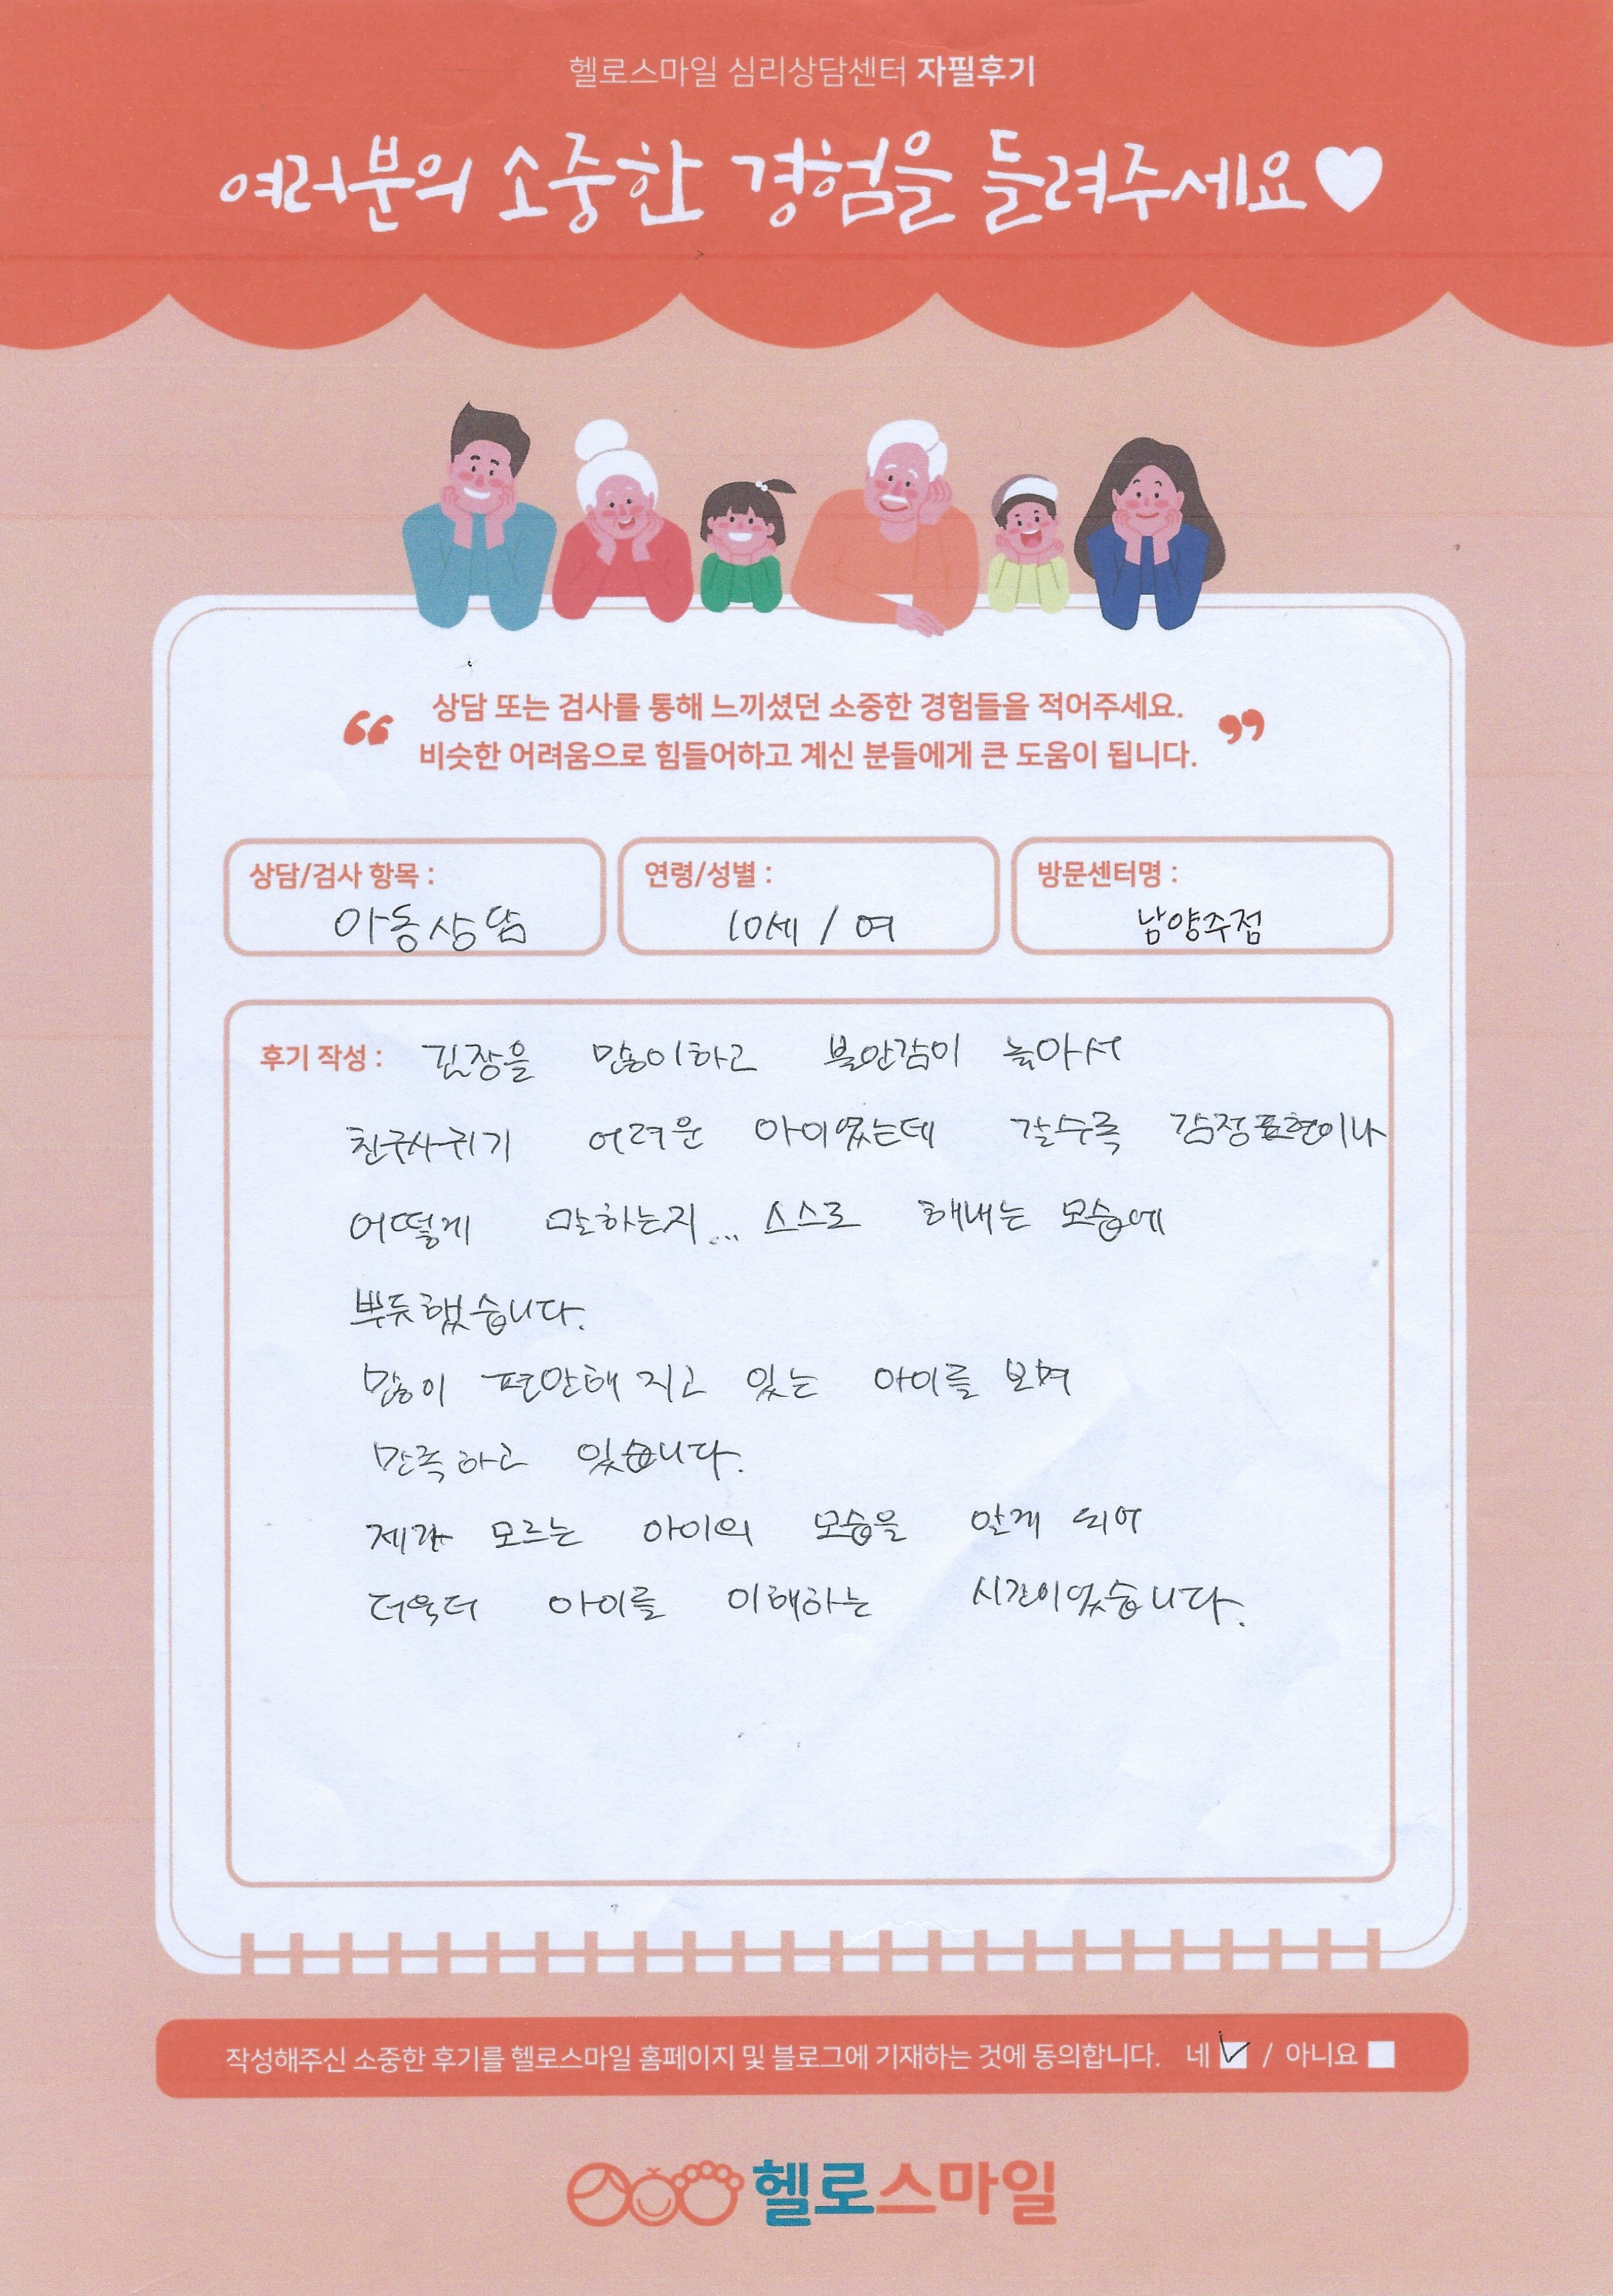 헬로스마일 심리상담센터 자필후기
여러분의 소중한 경험을 들려주세요♥
“ 상담 또는 검사를 통해 느끼셨던 소중한 경험들을 적어주세요.
비슷한 어려움으로 힘들어하고 계신 분들에게 큰 도움이 됩니다. ”
상담/검사 항목 : 아동상담
연령/성별 : 10세 / 여
방문센터명 : 남양주점
후기 작성 : 긴장을 많이하고 불안감이 높아서
친구사귀기 어려운 아이였는데 갈수록 감정표현이나
어떻게 말하는지... 스스로 해내는 모습에
뿌듯했습니다.
많이 편안해 지고 있는 아이를 보며
만족하고 있습니다.
제가 모르는 아이의 모습을 알게 되어
더욱더 아이를 이해하는 시간이었습니다.
작성해주신 소중한 후기를 헬로스마일 홈페이지 및 블로그에 기재하는 것에 동의합니다. 네 ☑ / 아니요 ☐
헬로스마일